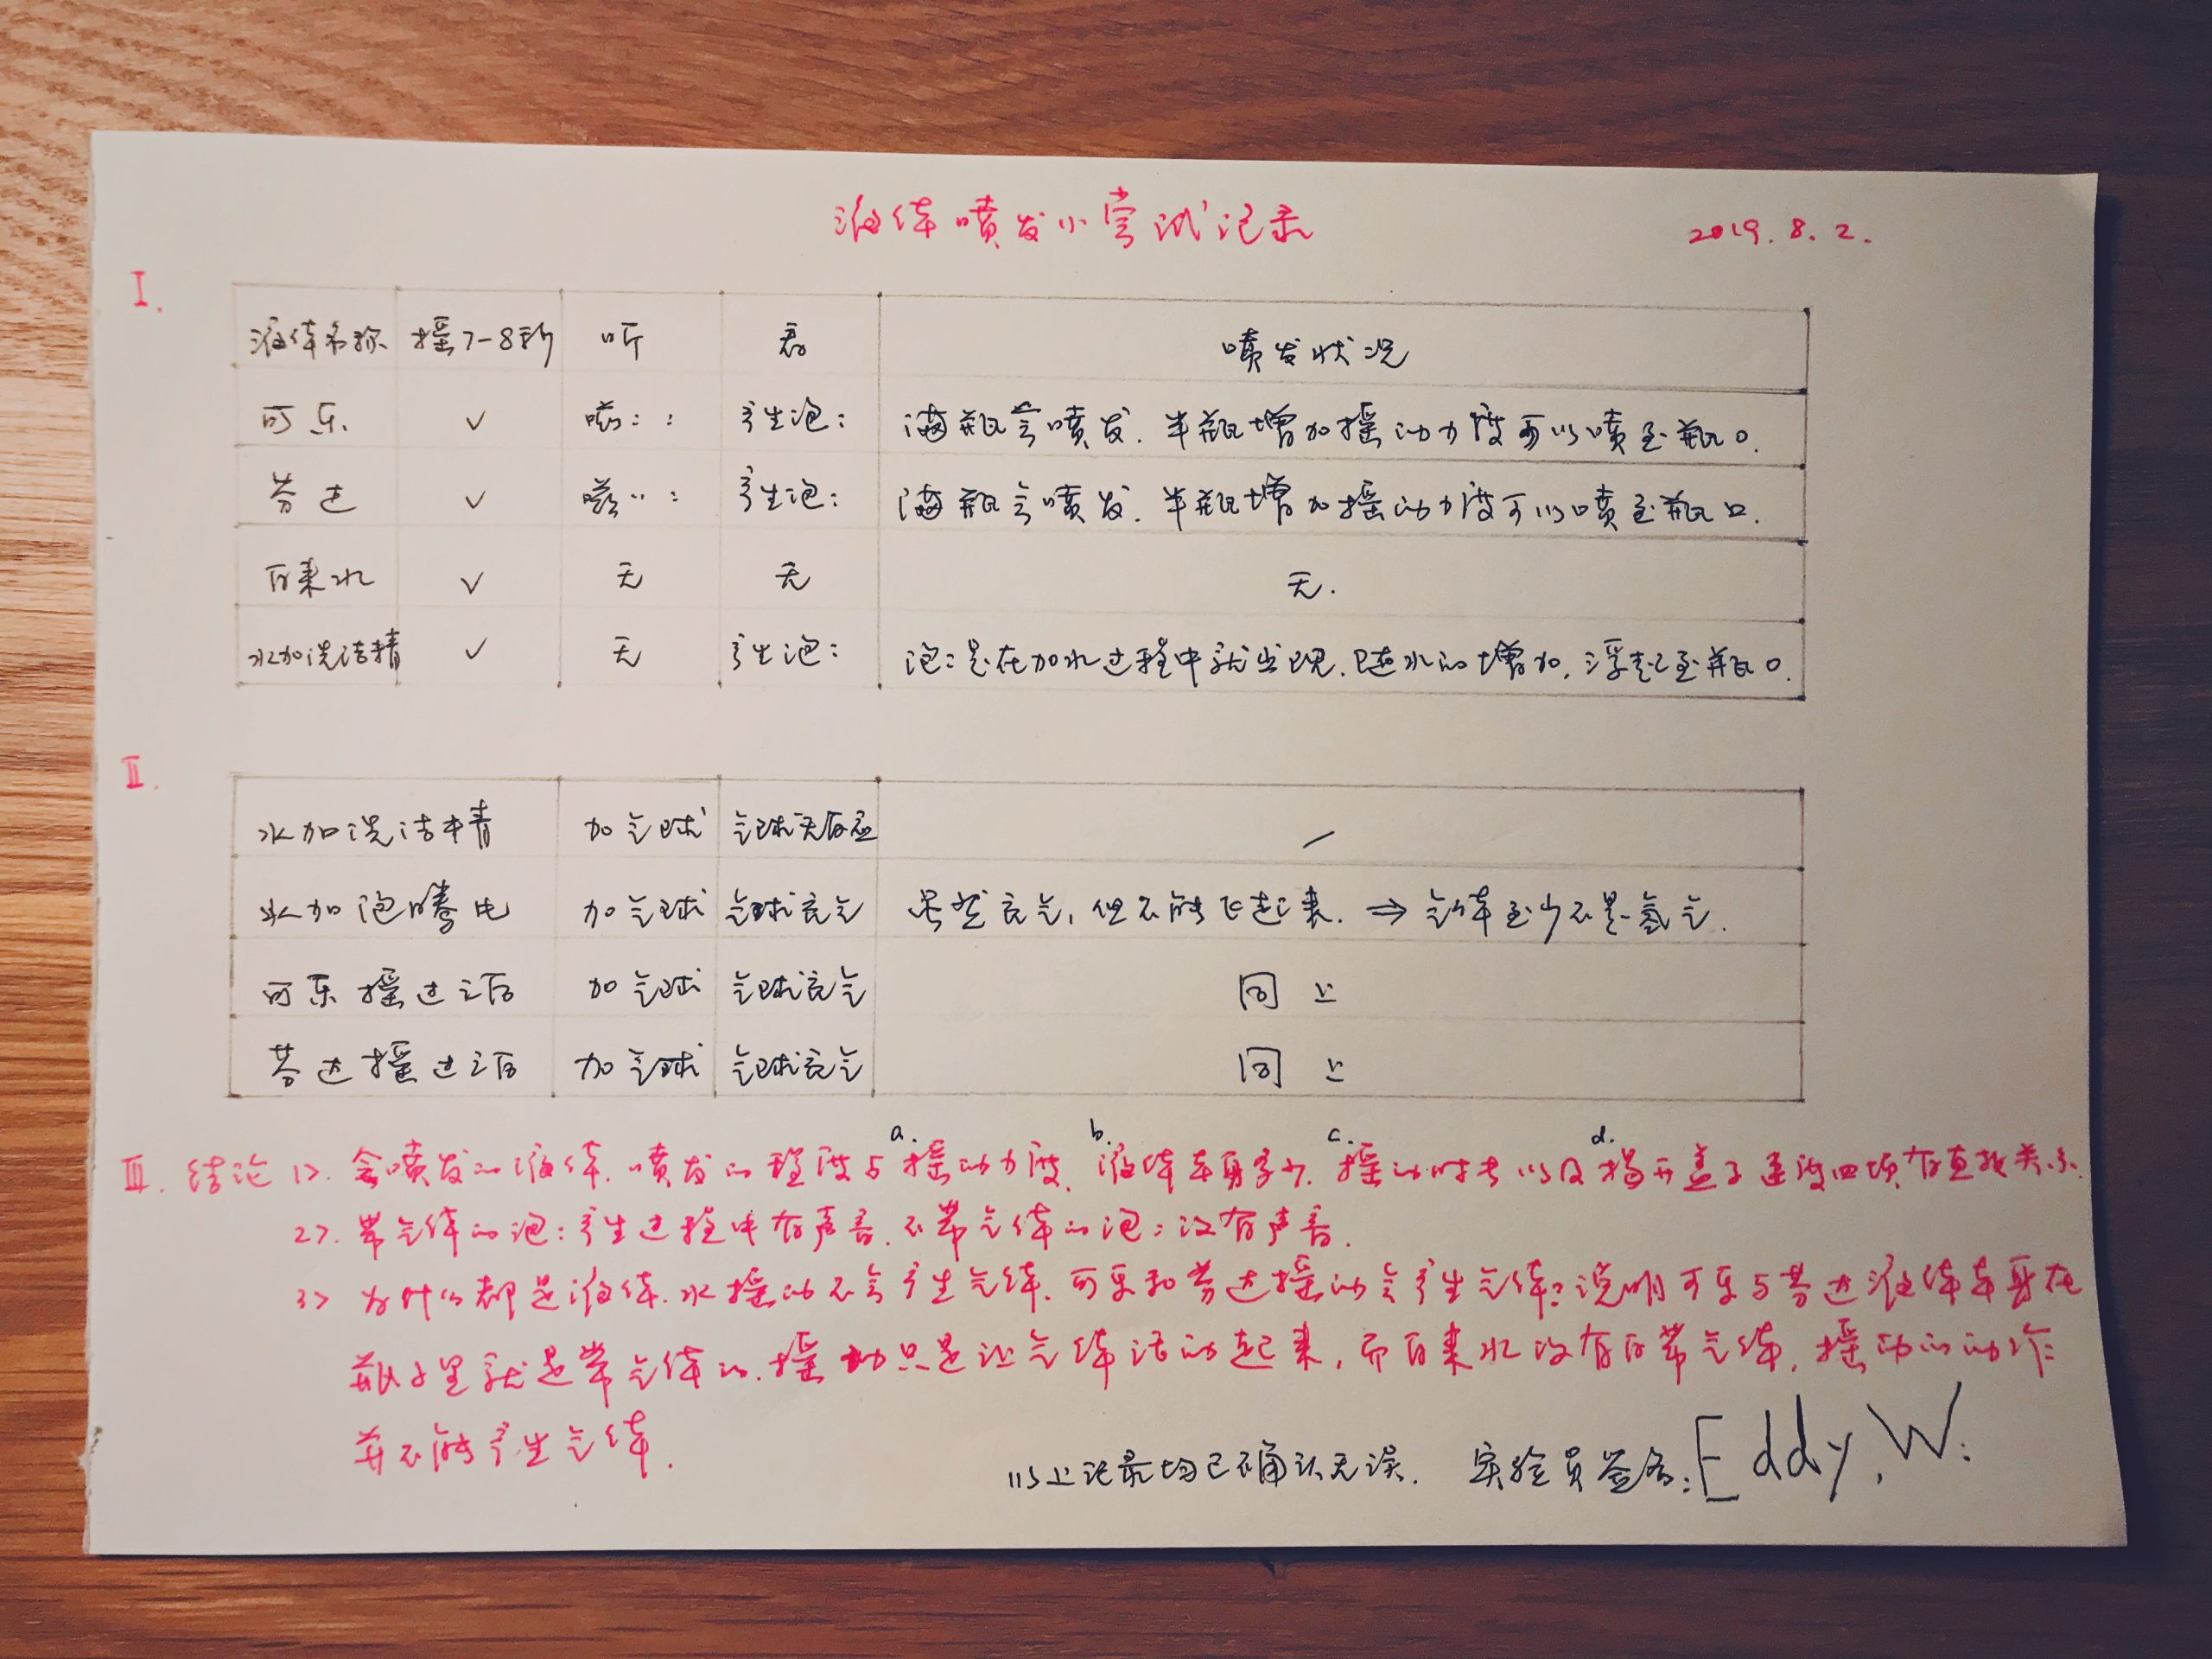 液体喷发小尝试记录
2019.8.2.
I.
液体名称 摇7-8秒 听 看 喷发状况
可乐 ✓ 嗞:: 产生泡: 满瓶会喷发.半瓶增加摇动力度可以喷至瓶口.
芬达 ✓ 嗞:: 产生泡: 满瓶会喷发.半瓶增加摇动力度可以喷至瓶口.
自来水 ✓ 无 无 无.
水加洗洁精 ✓ 无 产生泡: 泡:是在加水过程中就出现.随水的增加,浮起至瓶口.
II.
水加洗洁精 加气球 气球无反应 /
水加泡腾片 加气球 气球充气 虽然充气,但不能飞起来. ⇒ 气体至少不是氢气.
可乐摇过之后 加气球 气球充气 同上
芬达摇过之后 加气球 气球充气 同上
a. b. c. d.
III. 结论 1>. 会喷发的液体.喷发的程度与摇动力度、液体本身多少.摇动时长以及揭开盖子速度四项有直接关系.
2>. 带气体的泡:产生过程中有声音.不带气体的泡:没有声音.
3> 为什么都是液体.水摇动不会产生气体.可乐和芬达摇动会产生气体?说明可乐与芬达液体本身在
瓶子里就是带气体的.摇动只是让气体活动起来,而自来水没有自带气体,摇动的动作
并不能产生气体.
以上记录均已确认无误. 实验员签名:Eddy.W.